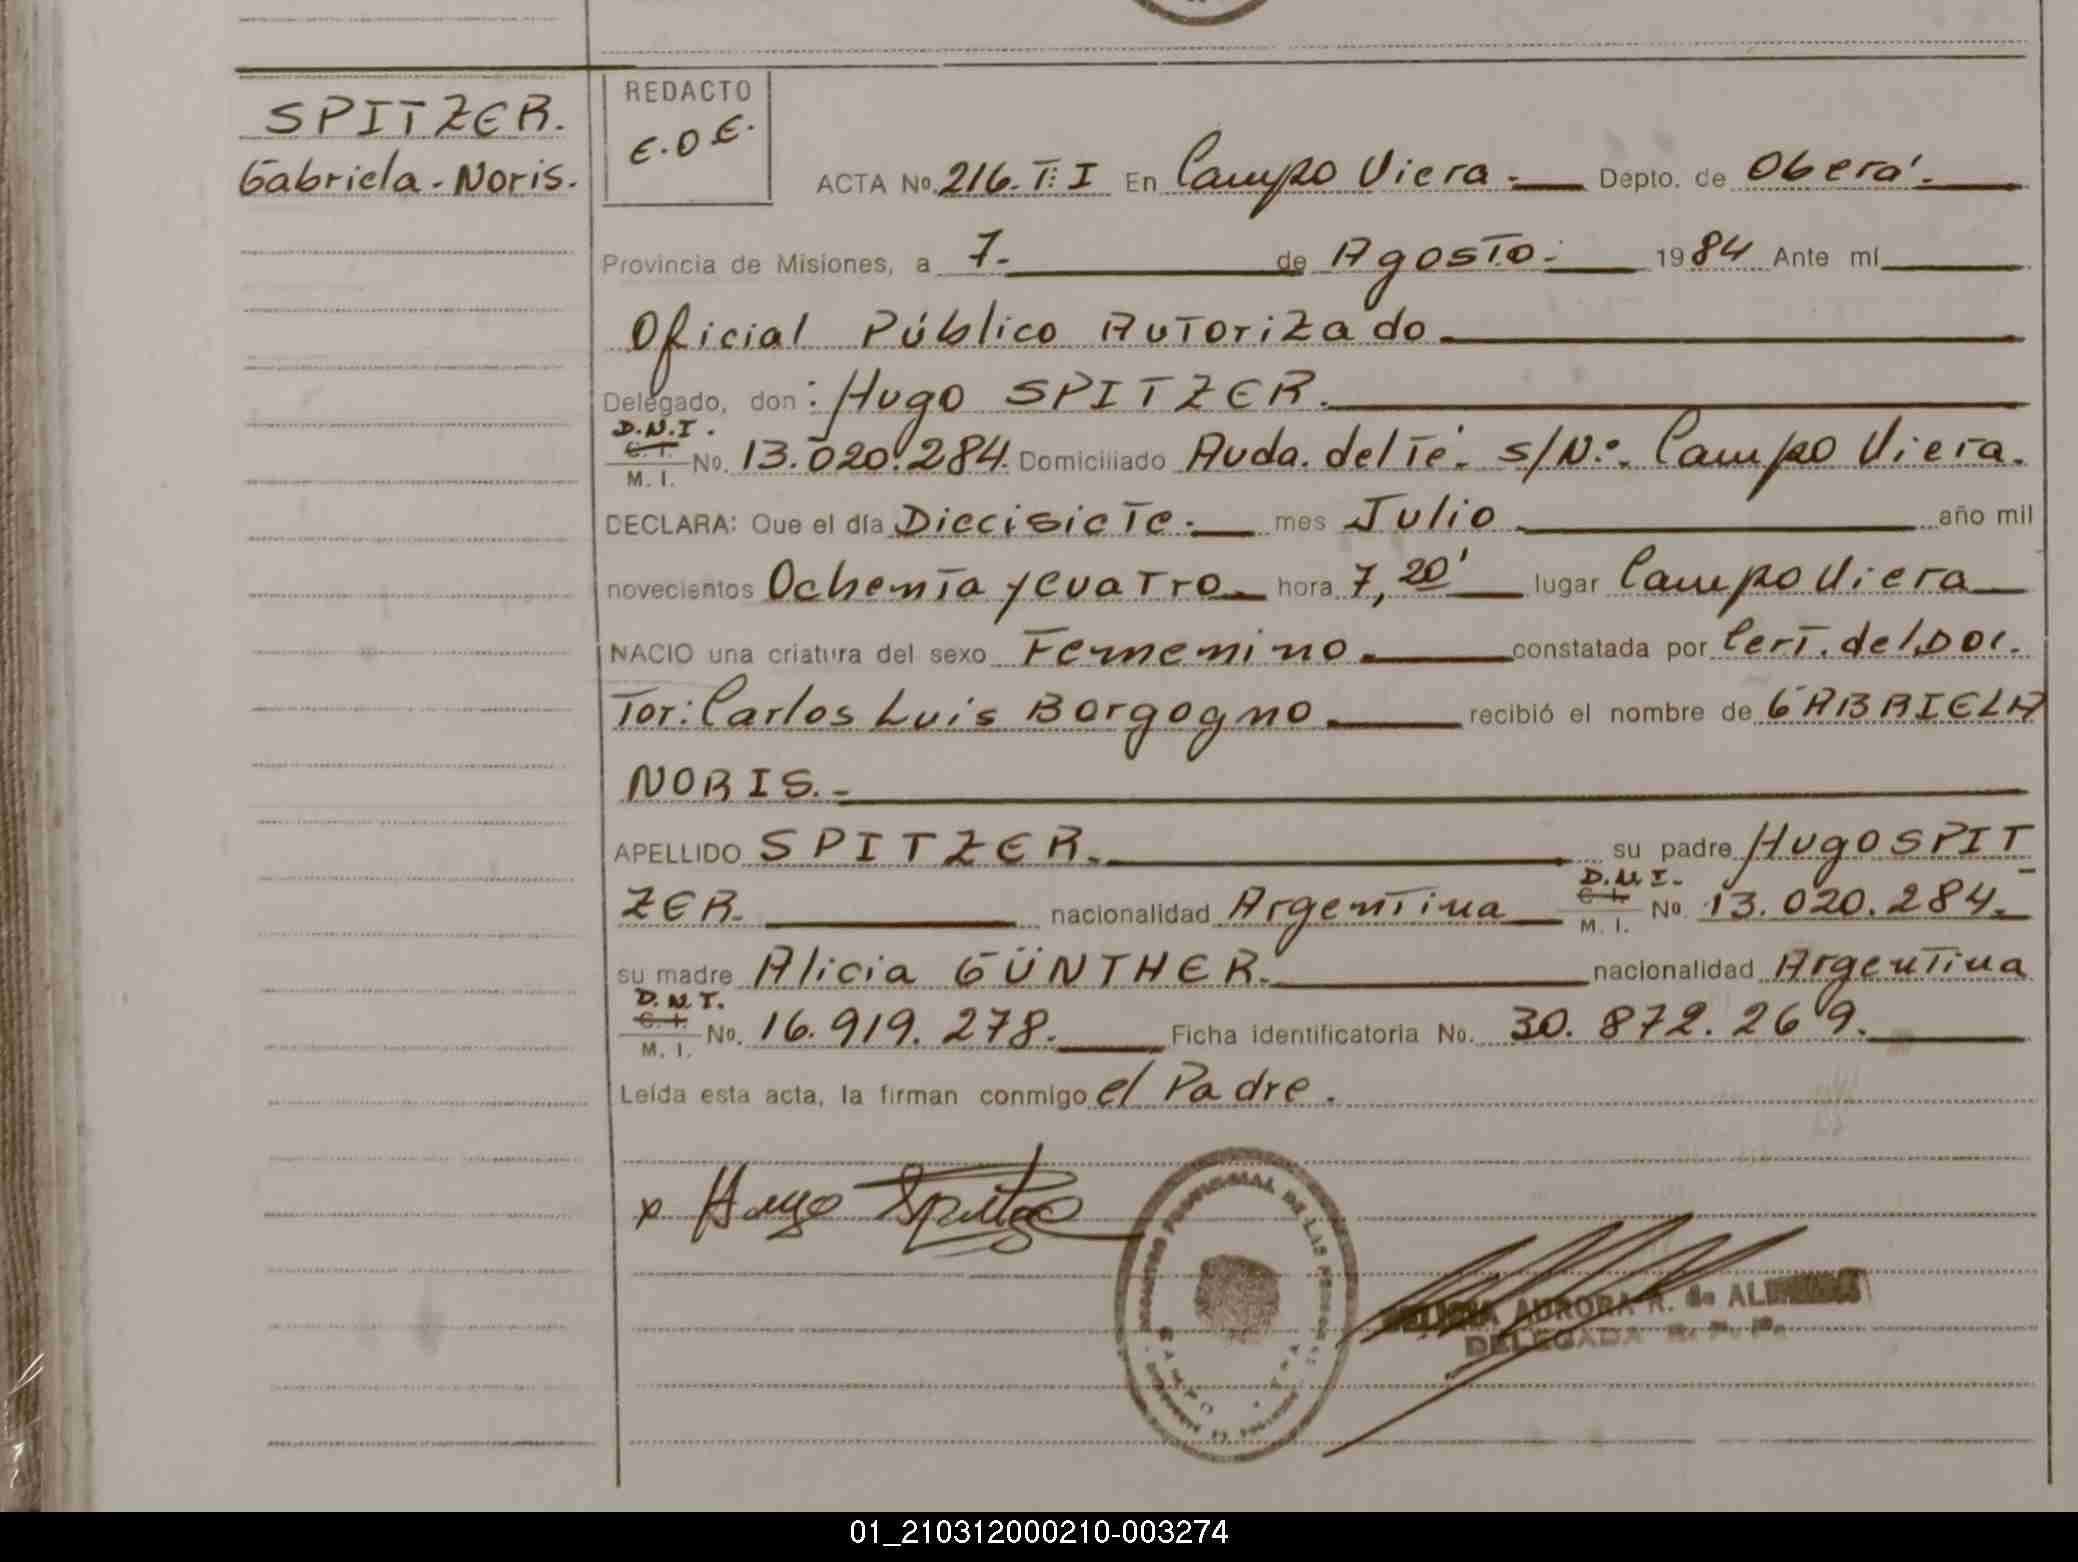 SPITZER.
Gabriela - Noris.
REDACTO
E.O.E.
ACTA No. 216. T: I En Campo Viera. Depto. de Oberá.
Provincia de Misiones, a 7. de Agosto. 1984 Ante mí
Oficial Público Autorizado
Delegado, don: Hugo SPITZER.
D.N.I.
C. I.
M. I. No. 13.020.284. Domiciliado Avda. del Té. s/Nº. Campo Viera.
DECLARA: Que el día Diecisiete. mes Julio año mil
novecientos Ochenta y Cuatro hora 7,20' lugar Campo Viera
NACIO una criatura del sexo Femenino. constatada por Cert. del Doc.
Tor: Carlos Luis Borgogno recibió el nombre de GABRIELA
NORIS.-
APELLIDO SPITZER. su padre Hugo SPIT
D.N.I.
C. I.
ZER. nacionalidad Argentina M. I. No. 13.020.284.
su madre Alicia GÜNTHER. nacionalidad Argentina
D.N.I.
C. I.
M. I. No. 16.919.278. Ficha identificatoria No. 30.872.269.
Leída esta acta, la firman conmigo el Padre.
x Hugo Spitzer
PROVINCIAL DE LAS
AURORA R. de
DELEGADA
01_210312000210-003274